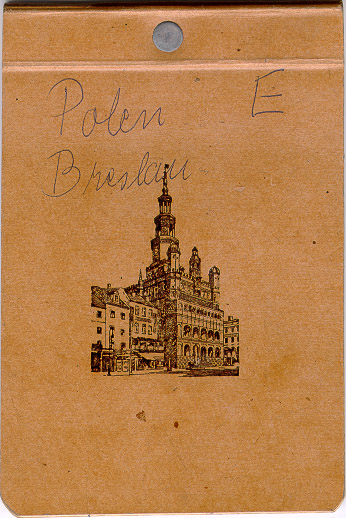 Polen E
Breslau